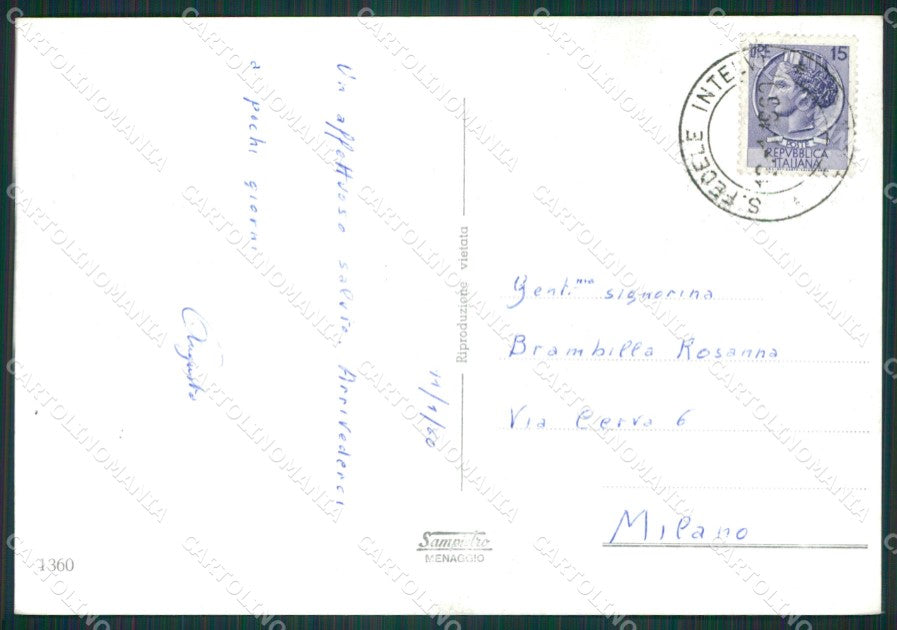 Un affettuoso saluto. Arrivederci
a pochi giorni
Augusto
11/1/60
Riproduzione vietata
Sampietro
MENAGGIO
1360
S. FEDELE INTELVI
LIRE 15
POSTE
REPVBBLICA
ITALIANA
Gent.ma signorina
Brambilla Rosanna
Via Cerva 6
Milano
CARTOLINOMANIA